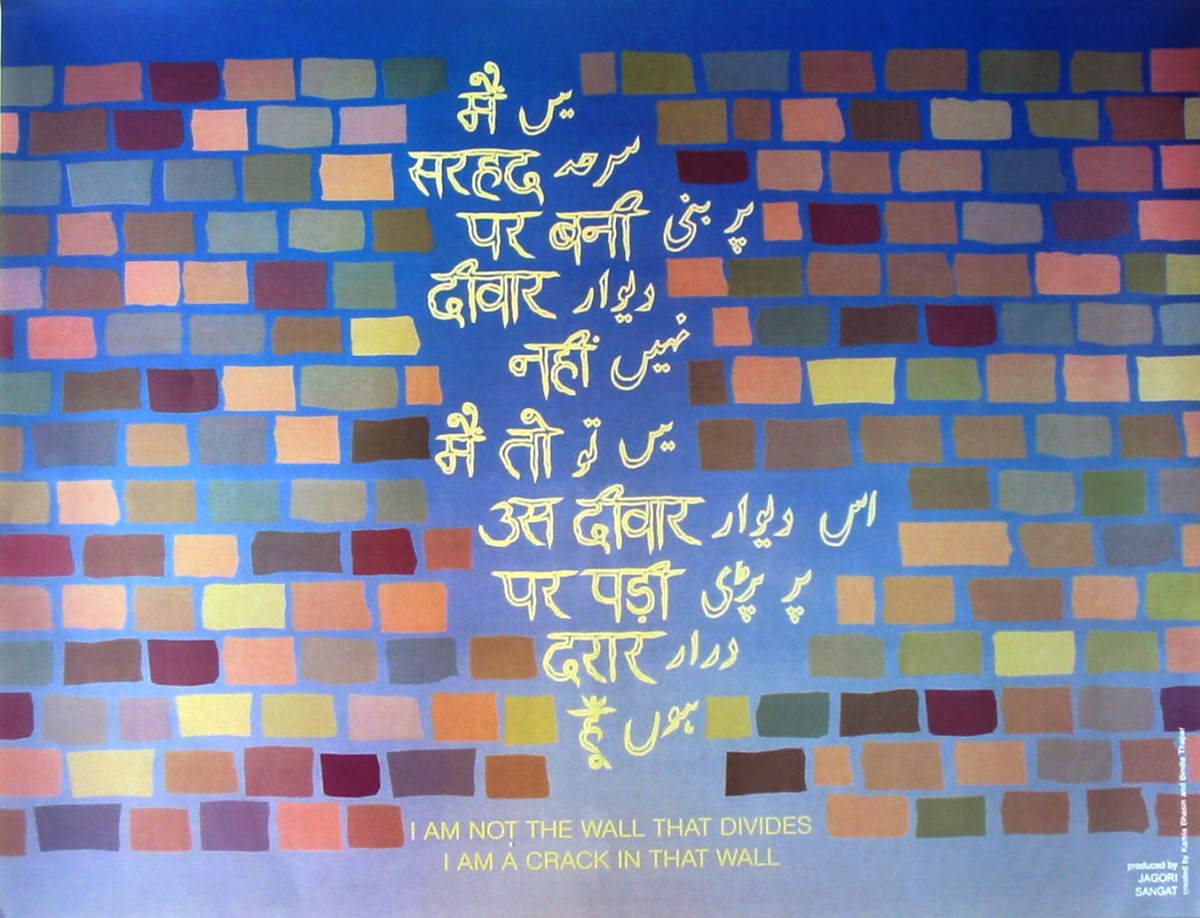 मैं میں
सरहद سرحد
पर बनी پر بنی
दीवार دیوار
नहीं نہیں
मैं तो میں تو
उस दीवार اس دیوار
पर पड़ी پر پڑی
दरार درار
हूँ ہوں
I AM NOT THE WALL THAT DIVIDES
I AM A CRACK IN THAT WALL
produced by
JAGORI
SANGAT
created by Kamla Bhasin and Bindia Thapar